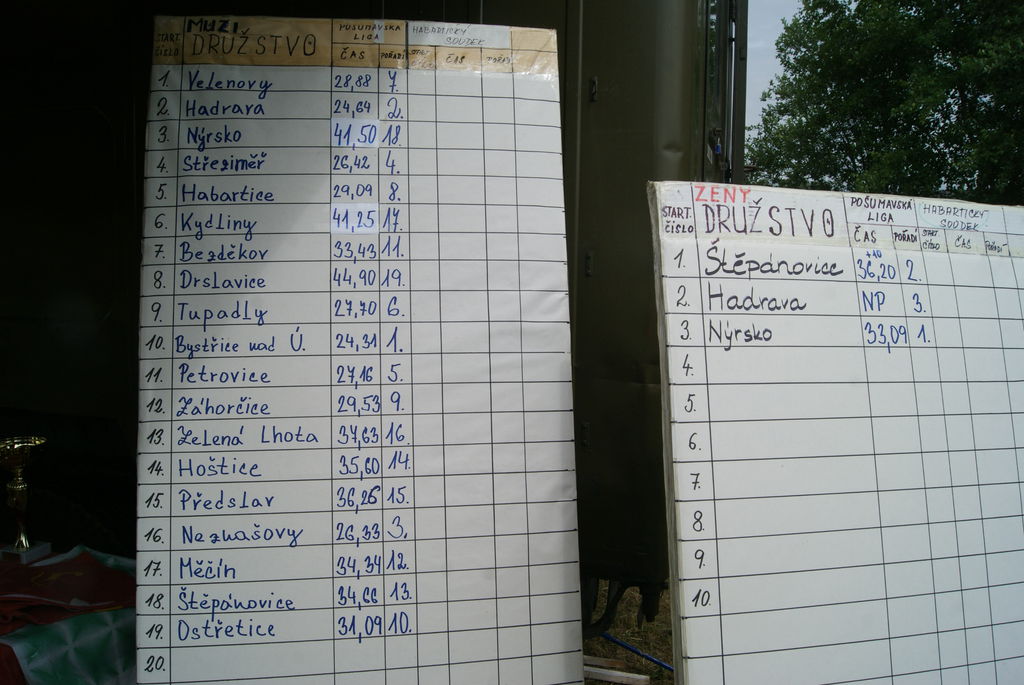 MUŽI
START. ČÍSLO DRUŽSTVO POŠUMAVSKÁ LIGA HABARTICKÝ SOUDEK
ČAS POŘADÍ START. ČÍSLO ČAS POŘADÍ
1. Velenovy 28,88 7.
2. Hadrava 24,64 2.
3. Nýrsko 41,50 18.
4. Střeziměř 26,42 4.
5. Habartice 29,09 8.
6. Kydliny 41,25 17.
7. Bezděkov 33,43 11.
8. Drslavice 44,90 19.
9. Tupadly 27,70 6.
10. Bystřice nad Ú. 24,31 1.
11. Petrovice 27,16 5.
12. Záhorčice 29,53 9.
13. Zelená Lhota 37,63 16.
14. Hoštice 35,60 14.
15. Předslav 36,26 15.
16. Neznašovy 26,33 3.
17. Měčín 34,34 12.
18. Štěpánovice 34,66 13.
19. Ostřetice 31,09 10.
20.
ŽENY
START. ČÍSLO DRUŽSTVO POŠUMAVSKÁ LIGA HABARTICKÝ SOUDEK
ČAS POŘADÍ START. ČÍSLO ČAS POŘADÍ
+10
1. Štěpánovice 36,20 2.
2. Hadrava NP 3.
3. Nýrsko 33,09 1.
4.
5.
6.
7.
8.
9.
10.